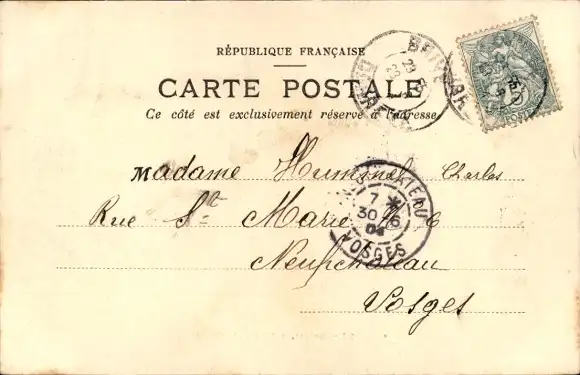 RÉPUBLIQUE FRANÇAISE
CARTE POSTALE
Ce côté est exclusivement réservé à l'adresse
Madame Hummel Charles
Rue Ste Marie N° 6
Neufchateau
Vosges
7
30 6
04
VOSGES
POSTES